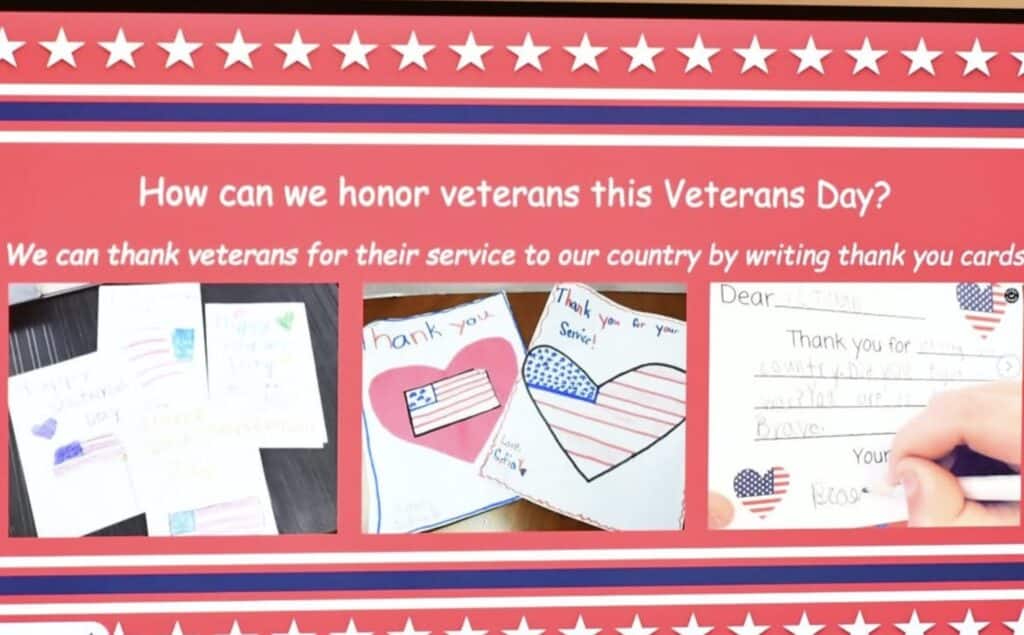 How can we honor veterans this Veterans Day?
We can thank veterans for their service to our country by writing thank you cards
Happy
Veterans
Day
Thank you
Thank you for your
Service!
Love,
Sofia
Dear
Thank you for
country. Did you
war?
Brave.
Your